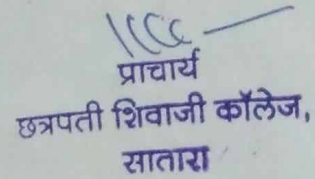 प्राचार्य
छत्रपती शिवाजी कॉलेज,
सातारा